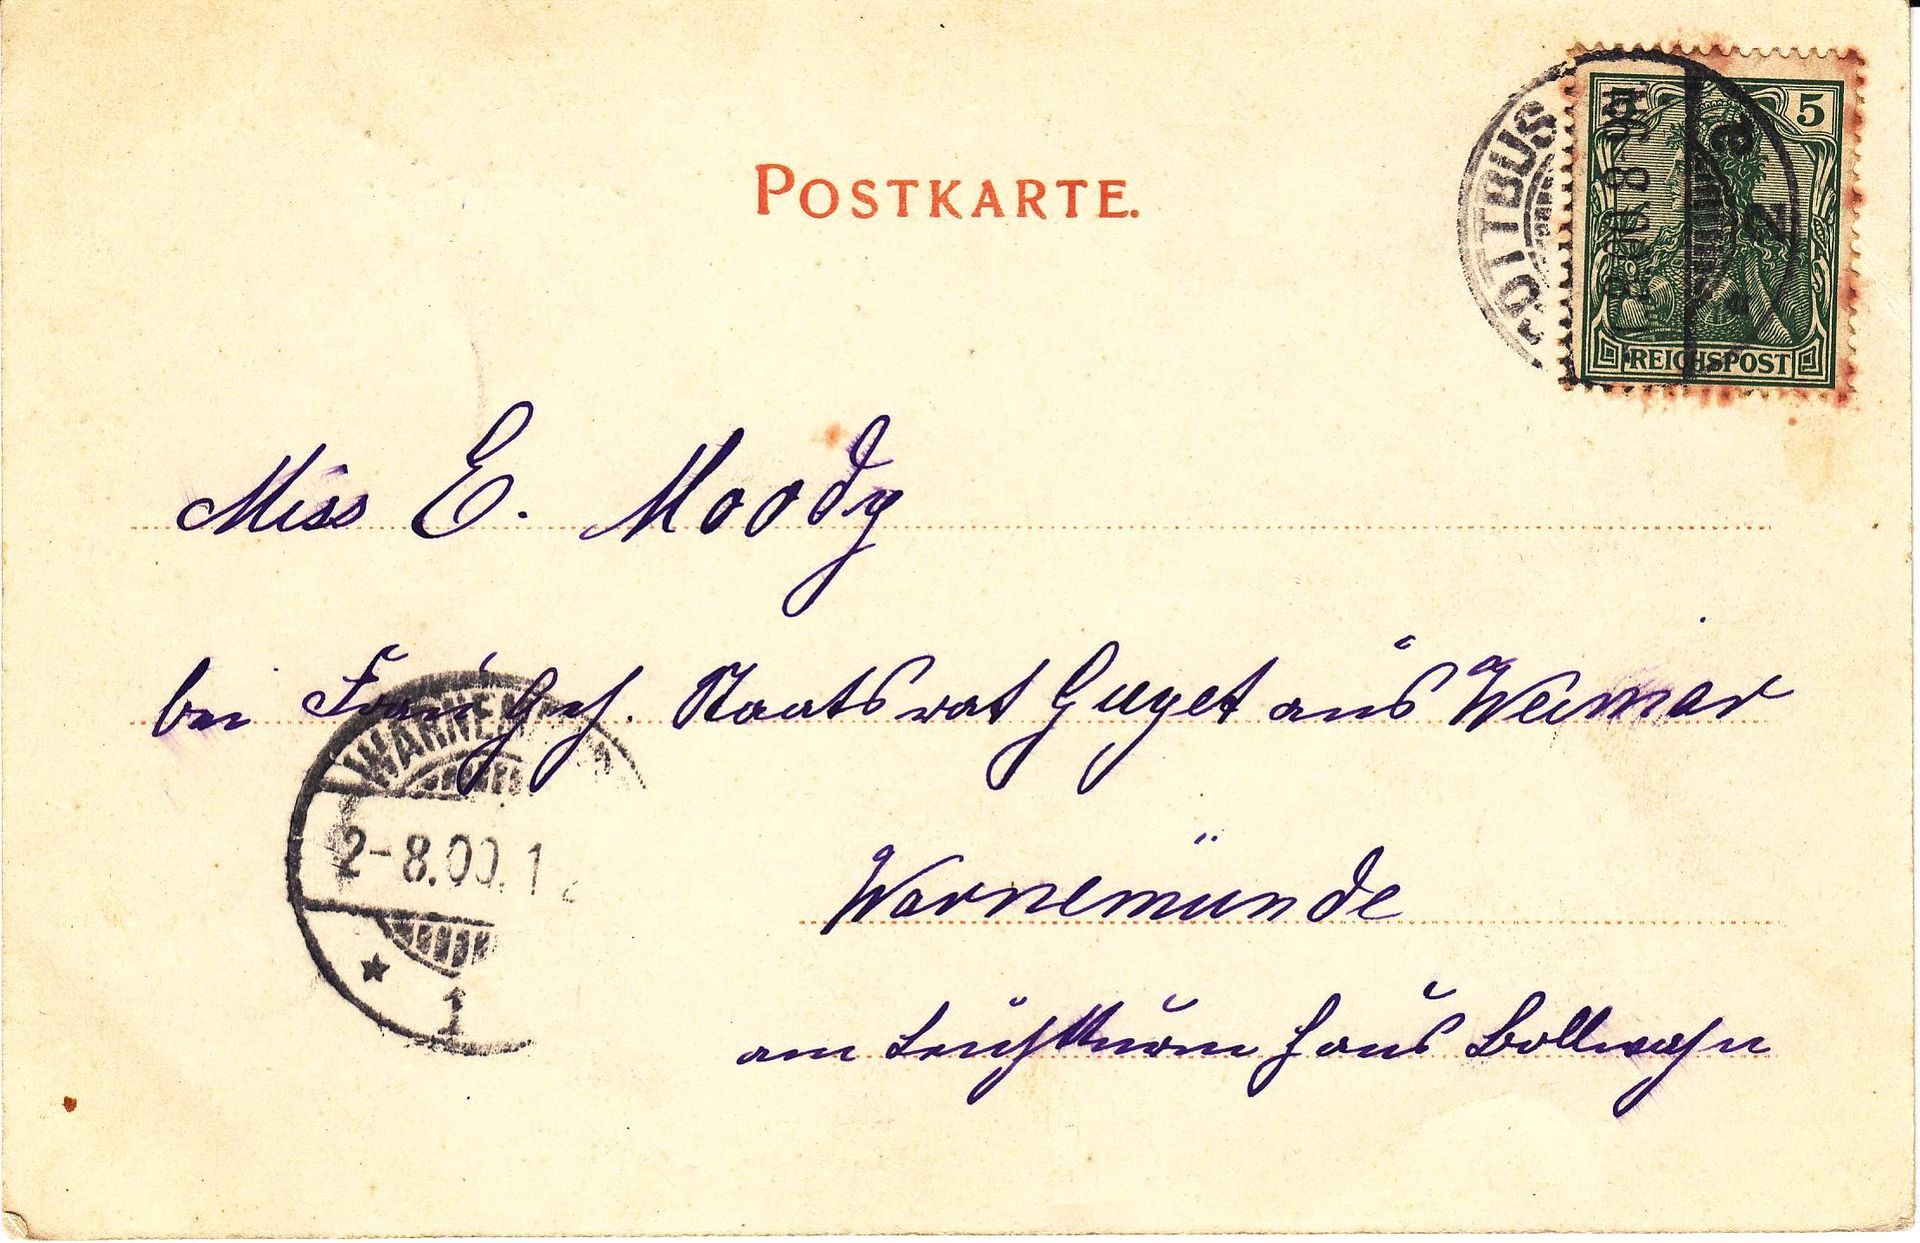 POSTKARTE.
COTTBUS
5 5
REICHSPOST
Miss E. Moody
bei Frau Geh. Staatsrat Guyet aus Weimar
WARNEM
2-8.00.1
1
Warnemünde
am Leuchtturm Haus Bollwahn